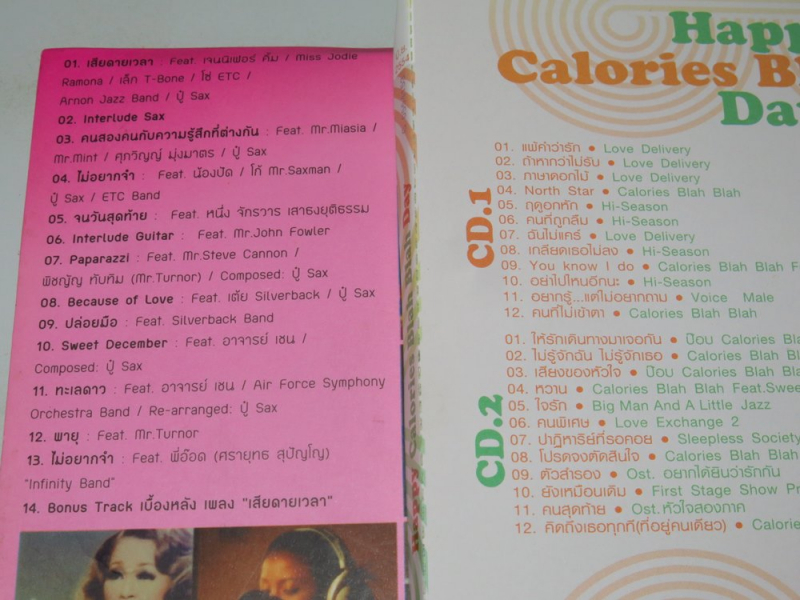 01. เสียดายเวลา : Feat. เจนนิเฟอร์ คิ้ม / Miss Jodie
Ramona / เล็ก T-Bone / โซ่ ETC /
Arnon Jazz Band / ปู่ Sax
02. Interlude Sax
03. คนสองคนกับความรู้สึกที่ต่างกัน : Feat. Mr.Miasia /
Mr.Mint / ศุภวิญญ์ มุ่งมาตร / ปู่ Sax
04. ไม่อยากจำ : Feat. น้องปัด / โก้ Mr.Saxman /
ปู่ Sax / ETC Band
05. จนวันสุดท้าย : Feat. หนึ่ง จักรวาร เสาธงยุติธรรม
06. Interlude Guitar : Feat. Mr.John Fowler
07. Paparazzi : Feat. Mr.Steve Cannon /
พิชญัญ ทับทิม (Mr.Turnor) / Composed: ปู่ Sax
08. Because of Love : Feat. เต้ย Silverback / ปู่ Sax
09. ปล่อยมือ : Feat. Silverback Band
10. Sweet December : Feat. อาจารย์ เชน /
Composed: ปู่ Sax
11. ทะเลดาว : Feat. อาจารย์ เชน / Air Force Symphony
Orchestra Band / Re-arranged: ปู่ Sax
12. พายุ : Feat. Mr.Turnor
13. ไม่อยากจำ : Feat. พี่อ๊อด (ศรายุทธ สุปัญโญ)
"Infinity Band"
14. Bonus Track เบื้องหลัง เพลง "เสียดายเวลา"
Happ
Calories Bl
Da
CD.1
01. แพ้คำว่ารัก • Love Delivery
02. ถ้าหากว่าไม่รับ • Love Delivery
03. ภาษาดอกไม้ • Love Delivery
04. North Star • Calories Blah Blah
05. ฤดูอกหัก • Hi-Season
06. คนที่ถูกลืม • Hi-Season
07. ฉันไม่แคร์ • Love Delivery
08. เกลียดเธอไม่ลง • Hi-Season
09. You know I do • Calories Blah Blah F
10. อย่าไปไหนอีกนะ • Hi-Season
11. อยากรู้...แต่ไม่อยากถาม • Voice Male
12. คนที่ไม่เข้าตา • Calories Blah Blah
CD.2
01. ให้รักเดินทางมาเจอกัน • ป๊อบ Calories Bla
02. ไม่รู้จักฉัน ไม่รู้จักเธอ • Calories Blah Bl
03. เสียงของหัวใจ • ป๊อบ Calories Blah Bla
04. หวาน • Calories Blah Blah Feat.Swee
05. ใจรัก • Big Man And A Little Jazz
06. คนพิเศษ • Love Exchange 2
07. ปาฏิหาริย์ที่รอคอย • Sleepless Society
08. โปรดจงตัดสินใจ • Calories Blah Blah
09. ตัวสำรอง • Ost. อยากได้ยินว่ารักกัน
10. ยังเหมือนเดิม • First Stage Show Pr
11. คนสุดท้าย • Ost.หัวใจสองภาค
12. คิดถึงเธอทุกที(ที่อยู่คนเดียว) • Calorie